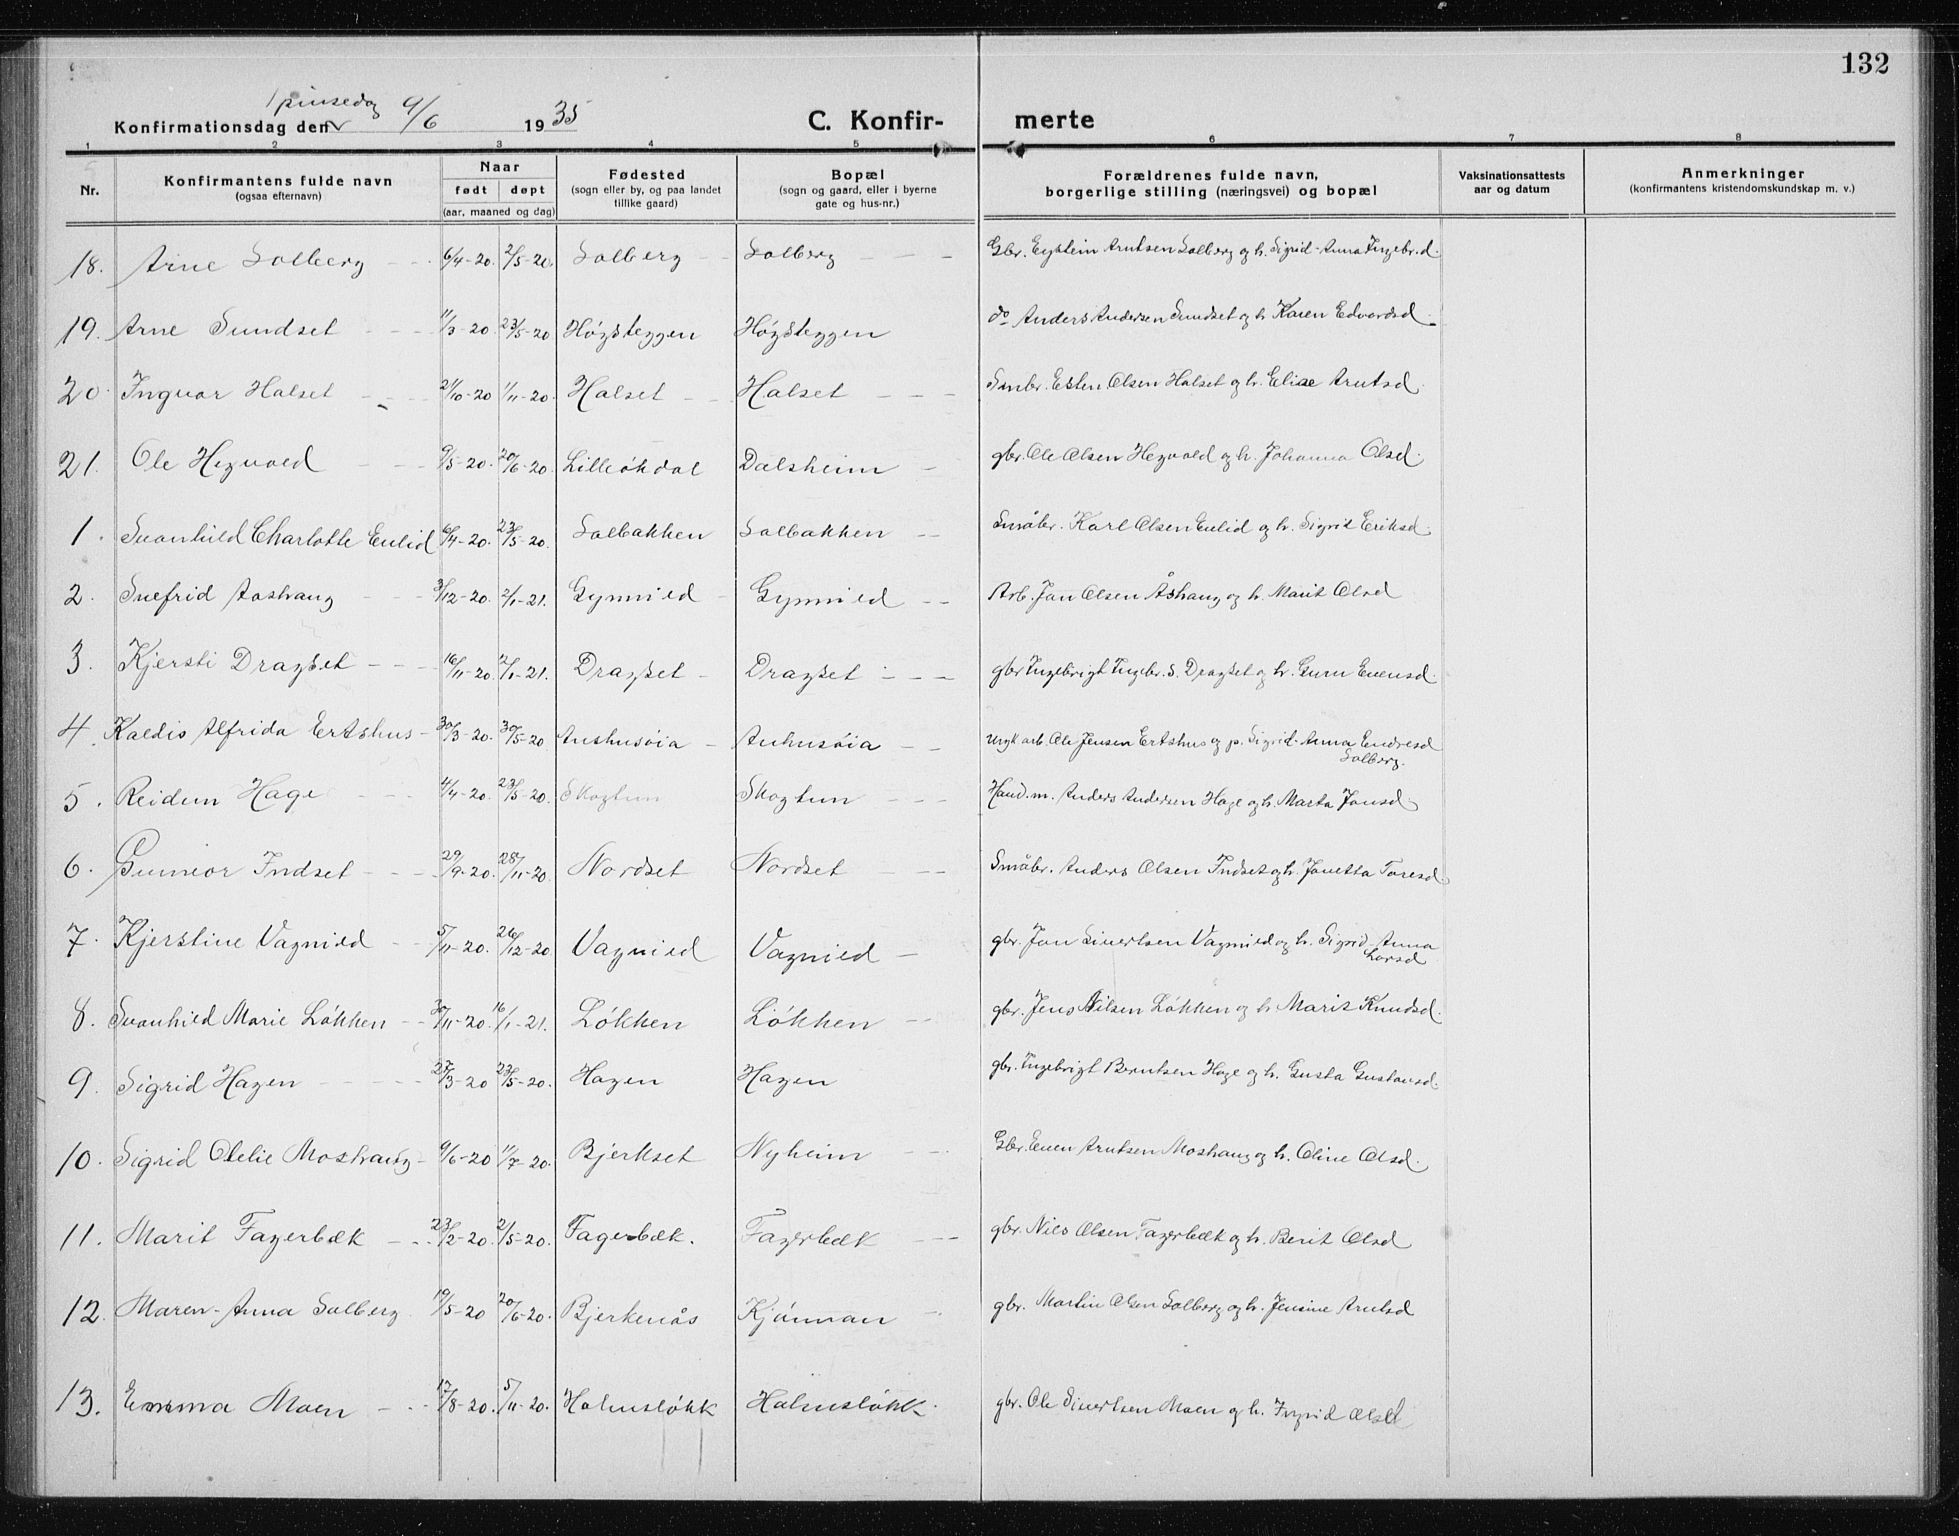 132
1 pinsedag
Konfirmationsdag den 9/6 1935
C. Konfirmerte
1 2 3 4 5 6 7 8
Nr. Konfirmantens fulde navn (ogsaa efternavn) Naar født døpt (aar, maaned og dag) Fødested (sogn eller by, og paa landet tillike gaard) Bopæl (sogn og gaard, eller i byerne gate og hus-nr.) Forældrenes fulde navn, borgerlige stilling (næringsvei) og bopæl Vaksinationsattests aar og datum Anmerkninger (konfirmantens kristendomskundskap m. v.)
18. Arne Solberg 6/4-20. 2/5-20. Solberg Solberg Gbr. Eystein Arntsen Solberg og h. Sigrid-Anna Ingebr.d.
19. Arne Sundset 11/3-20. 23/5-20 Høgsteggen Høgsteggen do Anders Andersen Sundset og h. Karen Edvardsd.
20. Ingvar Halset 21/10-20 1/11-20. Halset Halset Smbr. Esten Olsen Halset og h. Elise Arntsd.
21. Ole Hegvold 9/5-20. 20/6-20. Lilleøkdal Dalsheim gbr. Ole Olsen Hegvold og h. Johanna Olsd.
1. Svanhild Charlotte Enlid 6/4-20. 23/5-20. Solbakken Solbakken Småbr. Karl Olsen Enlid og h. Sigrid Eriksd.
2. Snefrid Aashaug 3/12-20. 2/1-21. Gynnild Gynnild Arb. Jon Olsen Åshaug og h. Marit Olsd
3. Kjersti Dragset 16/11-20. 2/1-21. Dragset Dragset gbr Ingebrigt Ingebr.s. Dragset og h. Guru Evensd.
4. Kaldis Alfrida Ertshus 30/3-20. 30/5-20 Aushusøia Auhusøia Ole Jensen Ertshus og p. Sigrid-Anna Endresd Solberg.
5. Reidun Hage 4/4-20. 23/5-20. Skogtun Skogtun Hand.m. Anders Andersen Hage og h. Marta Jonsd.
6. Gunvor Indset 29/9-20. 28/11-20. Nordset Nordset Småbr. Anders Olsen Indset og h. Jonetta Toresd.
7. Kjerstine Vagnild 5/11-20. 26/12-20 Vagnild Vagnild gbr. Jon Sivertsen Vagnild og h. Sigrid-Anna Larsd
8. Svanhild Marie Løkken 30/11-20. 16/1-21. Løkken Løkken gbr. Jens Nilsen Løkken og h Marit Knudsd.
9. Sigrid Hagen 27/3-20 23/5-20. Hagen Hagen gbr. Ingebrigt Berntsen Hage og h. Gusta Gustavsd.
10. Sigrid Olelie Moshaug 9/6-20 11/7-20. Bjerkset Nyheim Gbr. Even Arntsen Moshaug og h. Oline Olsd.
11. Marit Fagerbæk 23/2-20. 2/5-20. Fagerbæk. Fagerbæk gbr. Nils Olsen Fagerbæk og h. Berit Olsd
12. Maren-Anna Solberg 19/5-20 20/6-20. Bjerkenås Kjønman gbr. Martin Olsen Solberg og h. Jensine Arntsd
13. Emma Moen 17/8-20. 5/11-20. Holmsløkk Holmsløkk. gbr. Ole Sivertsen Moen og h. Ingrid Olsd